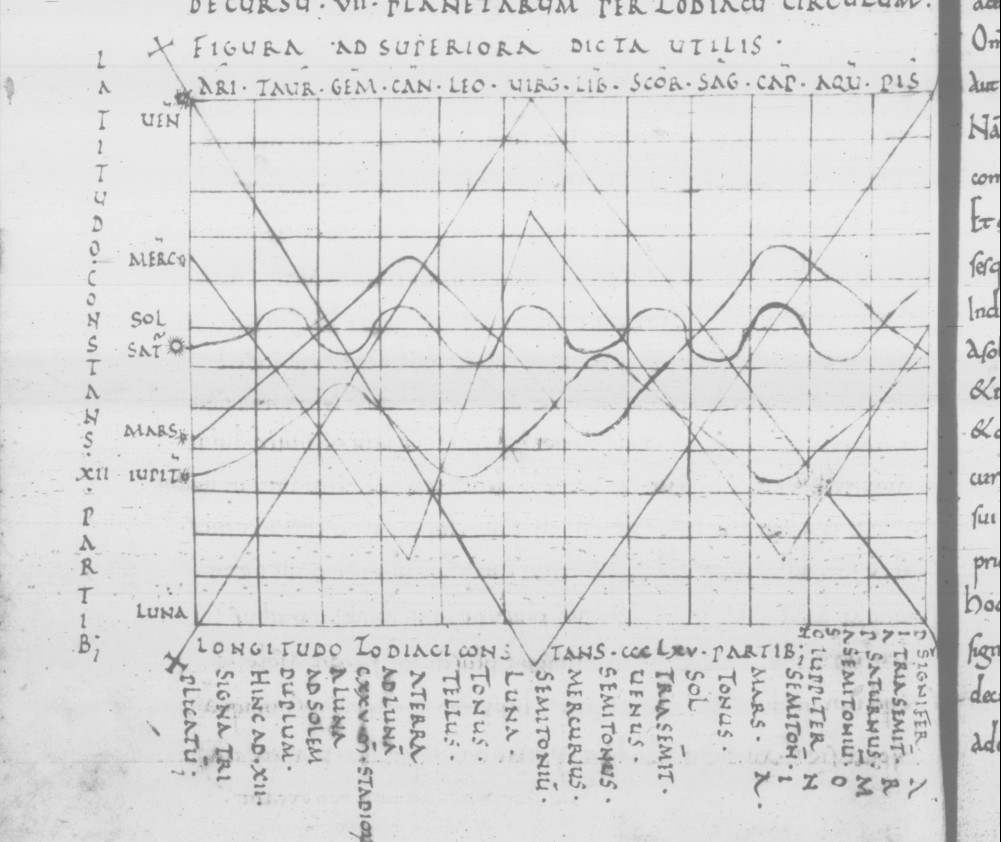 DE CURSU · VII · PLANETARUM PER ZODIACU CIRCULUM ·
FIGURA AD SUPERIORA DICTA UTILIS ·
ARI · TAUR · GEM · CAN · LEO · UIRG · LIB · SCOR · SAG · CAP · AQU · PIS
LATITUDO · CONSTANS · XII · PARTIB;
UEN
MERC
SOL
SAT
MARS
IUPIT
LUNA
LONGITUDO ZODIACI CONSTANS · CCCLXV · PARTIB;
PLICATU;
SIGNA TRI
HINC AD XII
DUPLUM ·
AD SOLEM
A LUNA
AD LUNA
A TERRA
TELLUS ·
TONUS ·
LUNA ·
SEMITONIU ·
MERCURIUS ·
SEMITONIUS ·
UENUS ·
TRIA SEMIT ·
SOL
TONUS ·
MARS · A ·
SEMITON · I
IUPPITER N
SEMITONIU O
SATURNUS M
TRIA SEMIT R
SIGNIFER